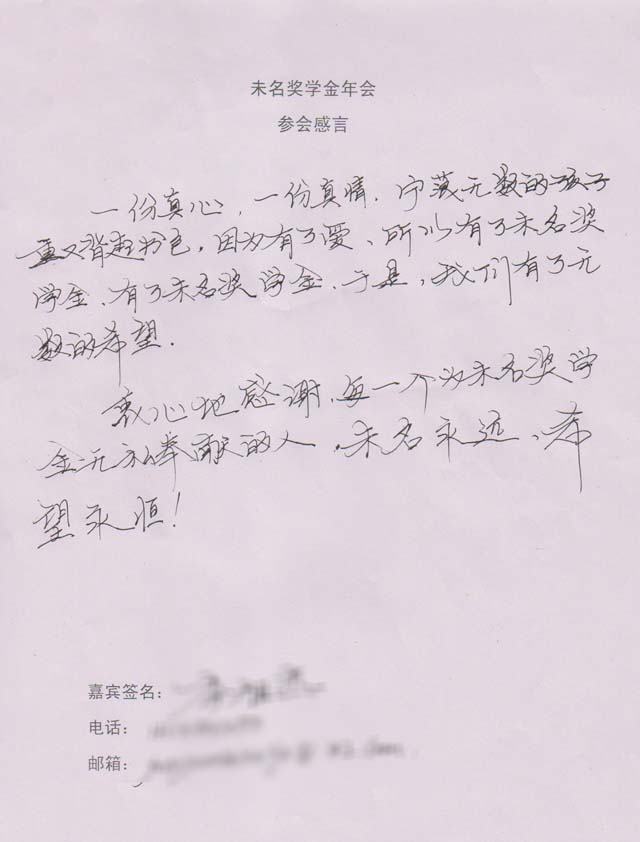 未名奖学金年会
参会感言
一份真心，一份真情．宁蒗无数的孩子
重又背起书包，因为有了爱、所以有了未名奖
学金．有了未名奖学金．于是，我们有了无
数的希望．
衷心地感谢，每一个为未名奖学
金无私奉献的人．未名永远、希
望永恒！
嘉宾签名：
电话：
邮箱：